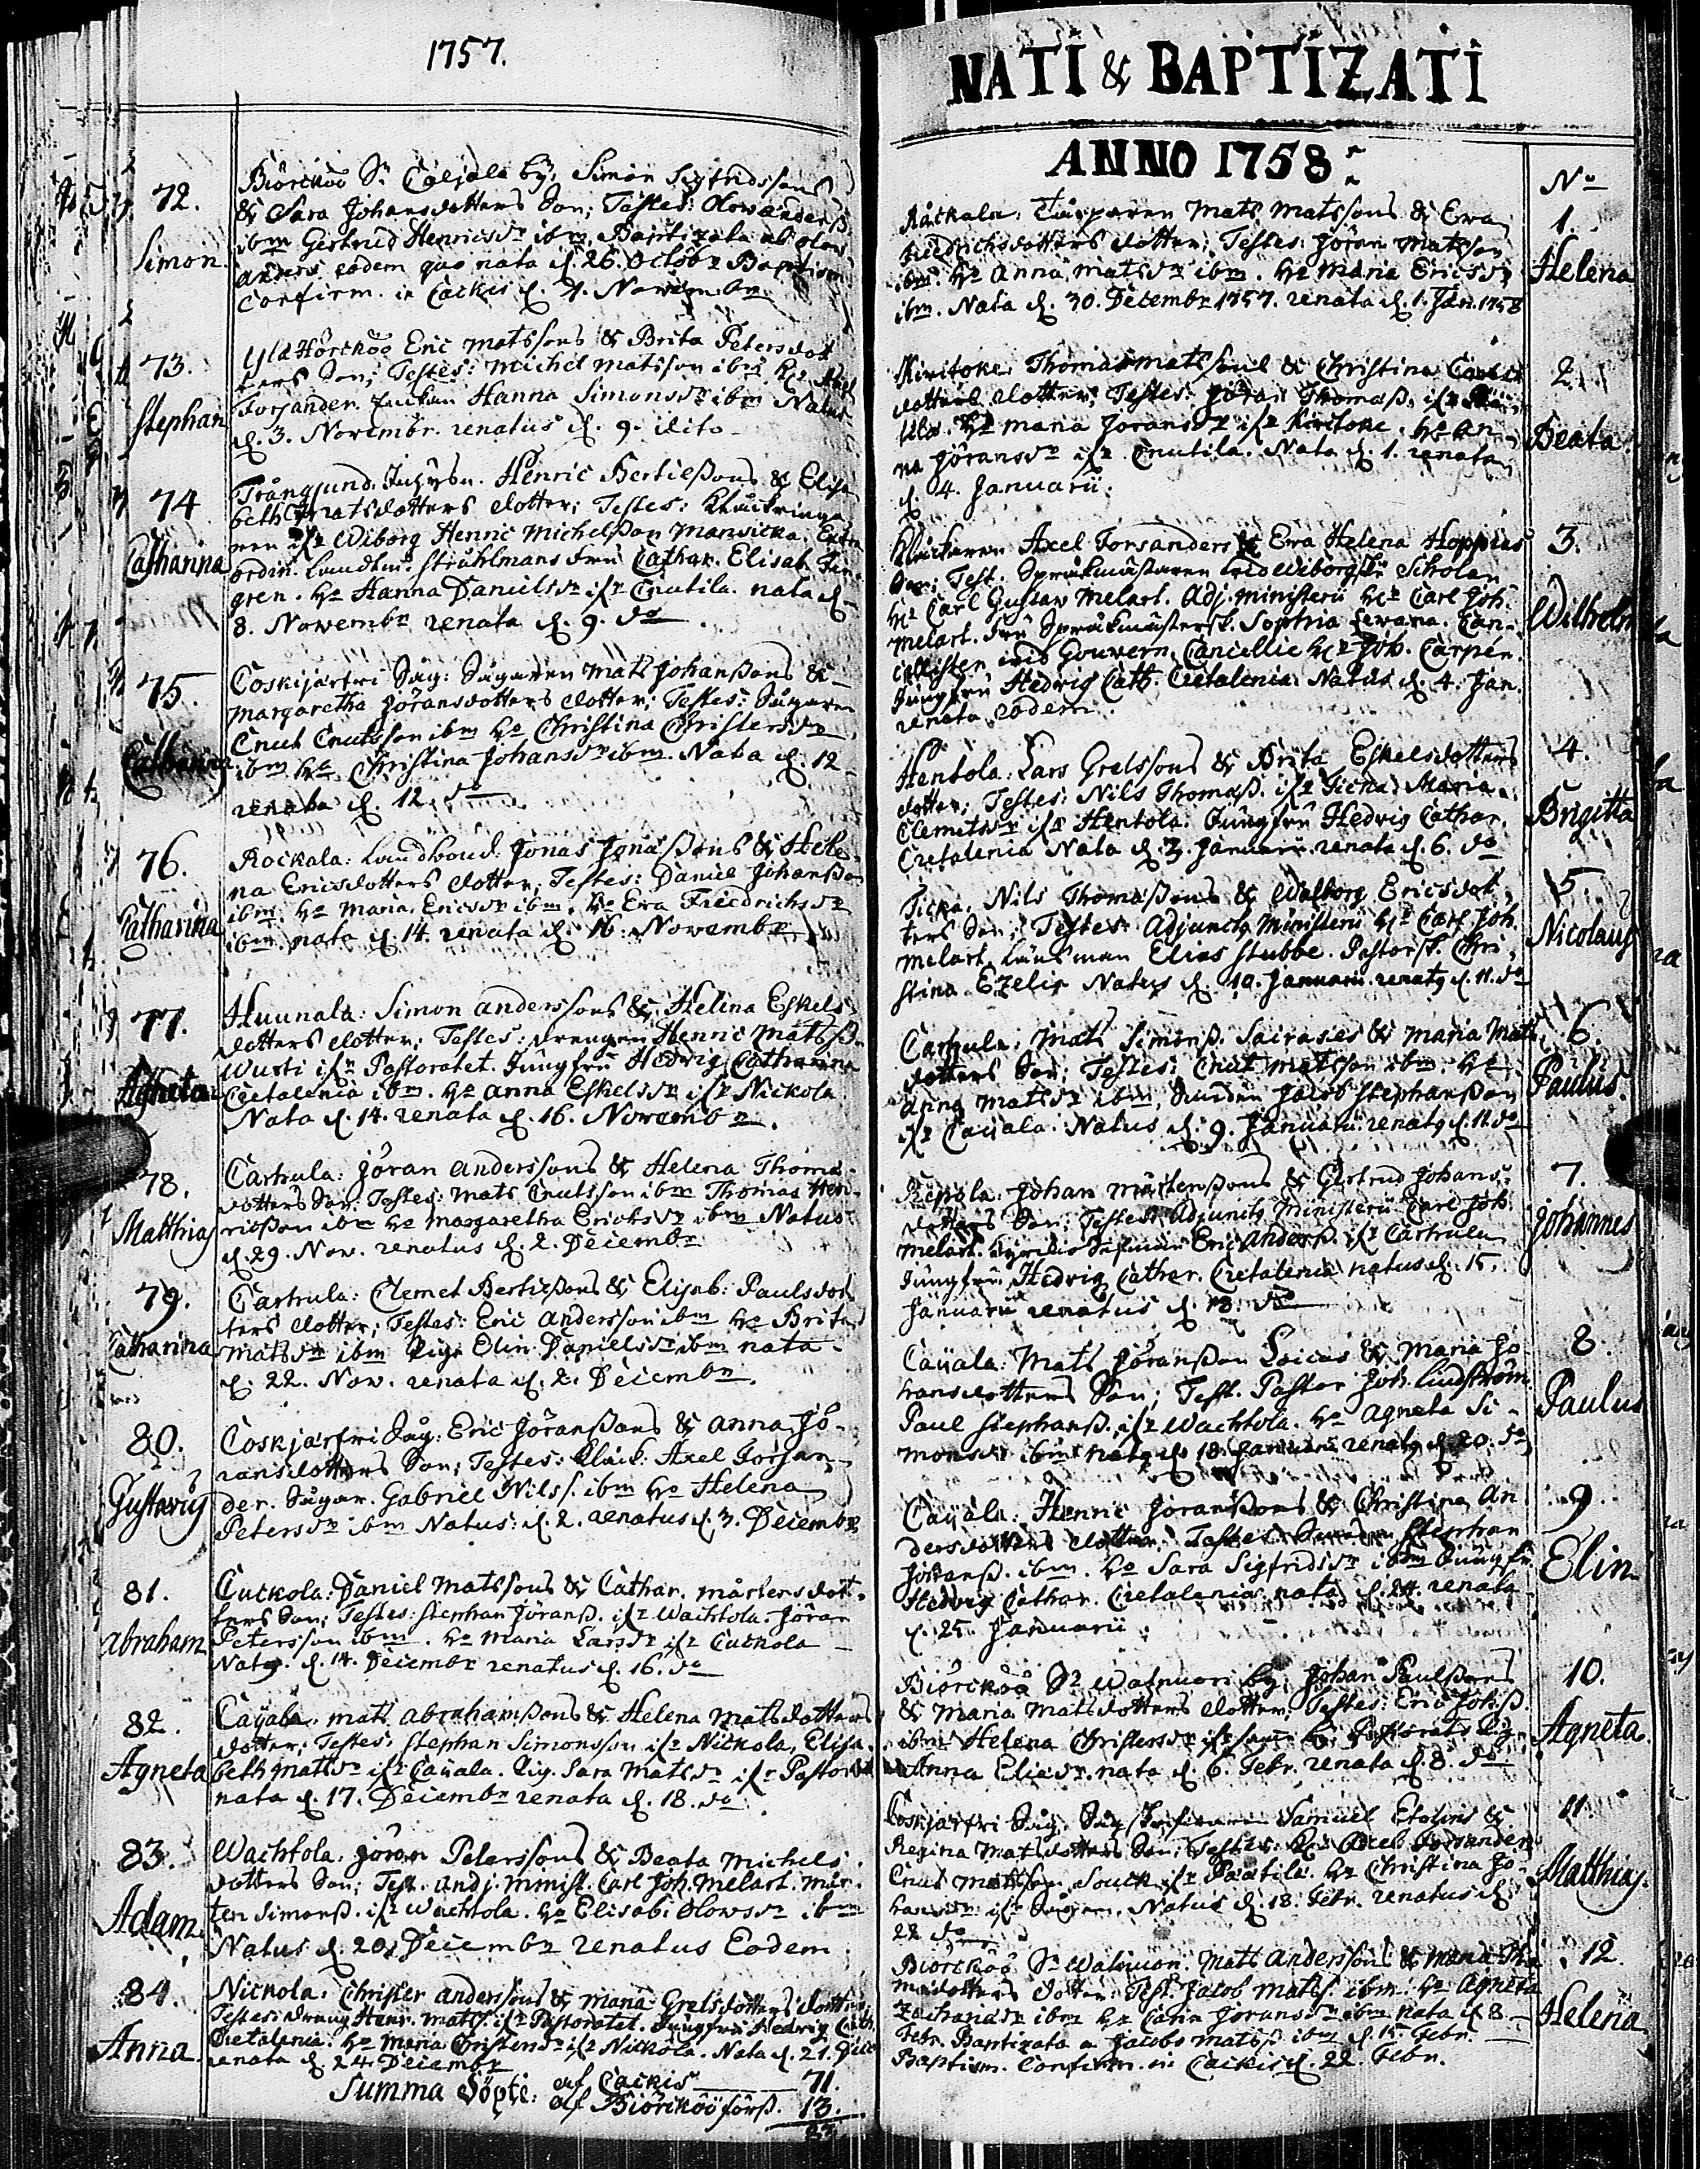 1757.
72.
Simon
Biörcköö Sn Caljala by: Simon Sigfridssons
& Sara Johansdotters Son; Testes: Olow anderss
ibm Gertrud Henricsdr ibm. Baptizata ab olow
anders eodem quo nata d. 26. Octobr Baptism
Confirm. in Cackis d. 4. Novembr
73.
Stephan
Eric Matssons & Brita Petersdot
ters Son; Testes: Michel Matsson ibm. Hr Axel
Forsander. Hanna Simonsdr ibm Natus
d. 3. Novembr. renatus d. 9. dito
74
Catharina
Trångsund. Henric Bertilssons & Elisa
beth Matsdotters dotter; Testes:
Wiborg Henric Michelsson Extra
ordin. Landtm. Stråhlmans fru Cathar. Elisab.
gren. Ho Hanna Danielsdr ifr Cnutila. nata d.
8. Novembr renata d. 9. do
75.
Catharina
Coskijarfwi Såg: Sågaren Mats Johanssons &
Margaretha Jöransdotters dotter; Testes: Sågaren
Cnut Cnutsson ibm Ho Christina Christersdr
ibm Ho Christina Johansdr ibm. Nata d. 12
renata d. 12. do
76.
Catharina
Rockala: Landboud Jonas Jonassons & Hele
na Ericsdotters dotter; Testes: Daniel Johansson
ibm. Ho Maria Ericsdr ibm. Ho Ewa Friedrichsdr
ibm. nata d. 14. renata d. 16. Novembr
77.
Agneta
Huunala: Simon anderssons & Helena Eskels
dotters dotter; Testes: drengen Henric Matss.
Wusti ifr Pastoratet. Jungfru Hedvig Catharina
Cretalenia ibm. Ho anna Eskelsdr ifr Nickola
Nata d. 14. renata d. 16. Novembr.
78.
Matthias
Cartula: Jöran anderssons & Helena Thomæ
dotters Son. Testes: Mats Cnutsson ibm Thomas Hen
ricsson ibm Ho Margaretha Erichsdr ibm Natus
d. 29. Nov. renatus d. 2. Decembr
79.
Catharina
Cartula: Clemet Bertilssons & Elisab: Paulsdot
ters dotter; Testes: Eric Andersson ibm Ho Brita
Matsdr ibm Pig. Elin Danielsdr ibm nata
d. 22. Nov. renata d. 2. Decembr.
80.
Gustavus
Coskjarfwi Såg: Eric Jöranssons & anna Jö
ransdotters Son; Testes: Klåck. Axel Forsan
der. Sågar. Gabriel Nilss. ibm Ho Helena
Petersdr ibm Natus: d. 2. renatus d. 3. Decembr
81.
Abraham
Cuckola: Daniel Matssons & Cathar. Mårtensdot
ters Son; Testes: Stephan Jöranss. ifr Wachtola. Jöran
Petersson ibm. Ho Maria Larsdr ifr Cuckola
Natus. d. 14. Decembr renatus d. 16. do
82.
Agneta
Cayala. Mats Abrahamssons & Helena Matsdotters
dotter; Testes: Stephan Simonsson ifr Nickola, Elisa
beth Matsdr ifr Cauala. Pig. Sara Matsdr ifr Pastorat
nata d. 17. Decembr renata d. 18. do
83.
Adam
Wachtola: Jöran Peterssons & Beata Michels
dotters Son; Test. Adj. Minist. Carl Joh. Melart. Mår
ten Simonss. ifr Wachtola. Ho Elisab: Olowsdr ibm
Natus d. 20. Decembr renatus Eodem
84.
Anna
Nickola: Christer anderssons & Maria Grelsdotters dotter;
Testes: dreng Henr. Matss. ifr Pastoratet. Jungfru Hedvig Cath.
Cretalenia. Ho Maria Christersdr ifr Nickola. Nata d. 21. Dec
renata d. 24. Decembr
Summa Döpte: af Cackis 71.
af Biörcköö förs. 13.
NATI & BAPTIZATI
ANNO 1758:
No
1.
Helena
Mats Matssons & Ewa
Friedrichsdotters dotter; Testes: Jöran Matsson
ibm. Ho anna Matsdr ibm. Ho Maria Ericsdr
ibm. Nata d. 30. Decembr 1757. renata d. 1. Jan. 1758
2.
Beata
Kiritoke: Thomas Matssons & Christina
dotters dotter; Testes: Jöran Thomass. ifr
Ho Maria Joransdr ifr Kiritoke. Ho An
na Jöransdr ifr Cnutila. Nata d. 1. renata
d. 4. Januarii.
3.
Wilhelm
Klåckaren Axel Forsanders & Ewa Helena Hoppius
Son; Test. Språkmästaren wid Wiborgske Scholan
Hr Carl Gustav Melart. Adj. ministerii Hr Carl Joh.
Melart. Fru Språkmästersk. Sophia Lerana. Can
cellisten wid Gouvern. Cancellie Hr Joh. Carpén.
Jungfru Hedvig Cath. Cretalenia. Natus d. 4. Jan.
renata eodem.
4.
Brigitta
Hentola: Lars Grelssons & Brita Eskelsdotters
dotter; Testes: Nils Thomass. ifr Ticka. Maria
Clemetsdr ifr Hentola. Jungfru Hedvig Cathar.
Cretalenia Nata d. 3. Januarii renata d. 6. do
5.
Nicolaus
Ticka. Nils Thomassons & Walborg Ericsdot
ters Son; Testes: Adjunctus Ministerii Hr Carl Joh.
Melart. Länsman Elias Stubbe. Pastorsk. Chri
stina Ezelia Natus d. 10. Januarii. renatus d. 11. do
6.
Paulus.
Cartula: Mats Simonss. Sairases & Maria Mats
dotters Son; Testes: Cnut Matsson ibm. Ho
anna Matsdr ibm, Jacob Stephansson
ifr Cauala. Natus d. 9. Januarii renatus d. 11. do
7.
Johannes
Repola: Johan Mårtenssons & Gertrud Johans
dotters Son; Testes: Adjunctus Ministerii Carl Joh.
Melart. Eric Anderss. ifr Cartula
Jungfru Hedvig Cathar. Cretalenia natus d. 15.
Januarii renatus d. 18. do
8.
Paulus
Cauala: Mats Jöransson Loicas & Maria Jo
hansdotters Son; Test. Pastor Joh. Lindström.
Paul Stephanss. ifr Wachtola. Ho Agneta Si
monsdr ibm natus d. 18. Januarii renatus d. 20. do
9
Elin
Cauala: Henric Joranssons & Christina An
dersdotters dotter; Testes: Stephan
Johanss. ibm. Ho Sara Sigfridsdr ibm Jungfr.
Hedvig Cathar. Cretalenia nata d. 24. renata
d. 25. Januarii.
10.
Agneta.
Biörcköö Sn by: Johan Paulssons
& Maria Matsdotters dotter; Testes: Eric Johss.
ibm Helena Christersdr Pastorats Pig.
Anna Eliasdr. nata d. 6. Febr. renata d. 8. do
11
Matthias.
Coskjarfwi Såg: Samuel Etolins &
Regina Matsdotters Son; Testes: Axel Forsander
Cnut Matsson Souck ifr Paatila. Ho Christina Jo
hansdr ifr Sågen. Natus d. 18. Febr. renatus d.
22 do
12.
Helena
Biörcköö Sn Mats Anderssons & Maria Tho
mædotters dotter. Test. Jacob Matss. ibm. Ho Agneta
Zachariædr ibm Ho Carin Joransdr ibm nata d. 8
Febr. Baptizata a Jacobo Matss. ibm d. 15. Febr.
Baptism. Confirm. in Cackis d. 22. Febr.